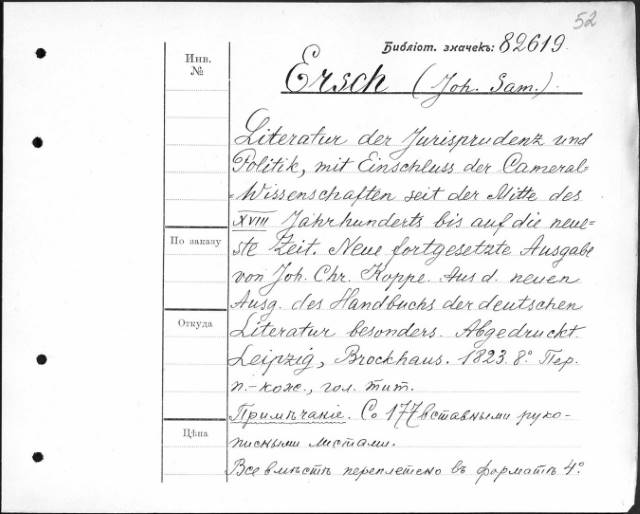 52
Библіот. значекъ: 82619.
Инв.
№
Ersch (Joh. Sam.)
Literatur der Jurisprudenz und
Politik, mit Einschluss der Cameral=
=Wissenschaften seit der Mitte des
XVIII Jahrhunderts bis auf die neue=
По заказу
ste Zeit. Neue fortgesetzte Ausgabe
von Joh. Chr. Koppe. Aus d. neuen
Ausg. des Handbuchs der deutschen
Откуда
Literatur besonders. Abgedruckt.
Leipzig, Brockhaus. 1823. 8º. Пер.
п.-кож., гол. тит.
Примѣчаніе. Со 177 вставными руко-
Цѣна
писными листами.
Все вмѣстѣ переплетено въ форматѣ 4º.